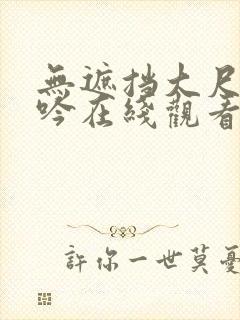 無遮挡大尺
吟在綫觀看
許你一世莫憂